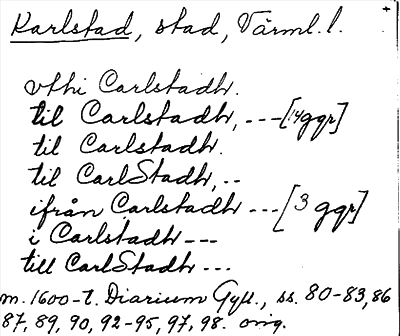 Karlstad, stad, Värml. l.
vthi Carlstadh.
til Carlstadh, --- [14 ggr]
til Carlstadh.
til CarlStadh, --
ifrån Carlstadh --- [3 ggr]
i Carlstadh ---
till CarlStadh ---
m. 1600-t. Diarium Gyll., ss. 80-83, 86
87, 89, 90, 92-95, 97, 98. orig.